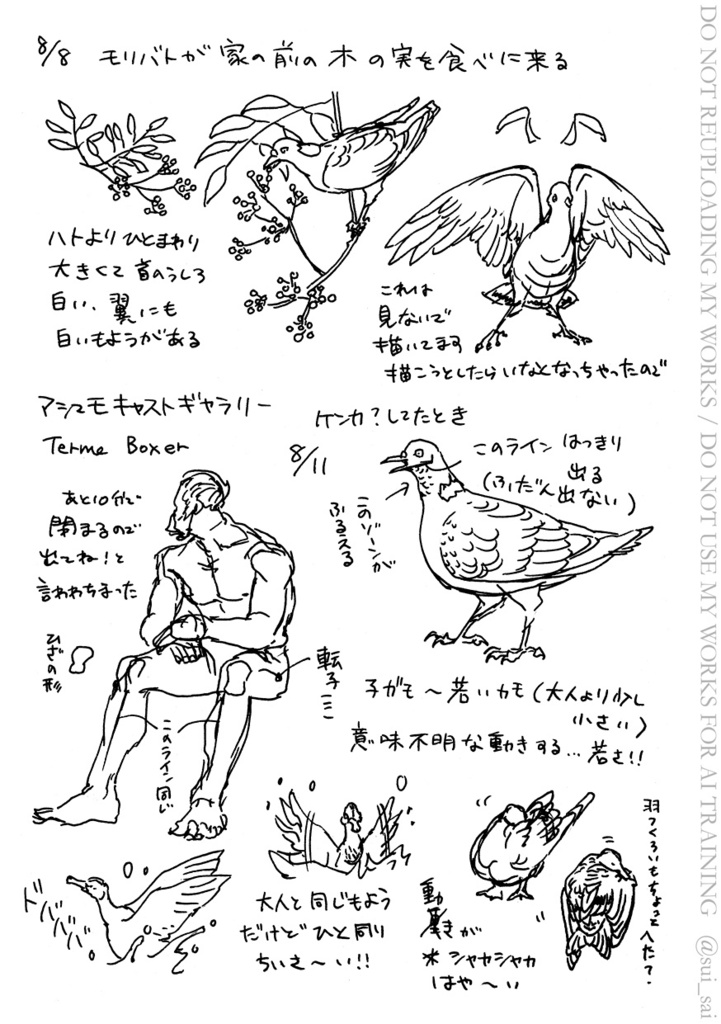 8/8 モリバトが家の前の木の実を食べに来る
ハトよりひとまわり
大きくて首のうしろ
白い、翼にも
白いもようがある
これは
見ないで
描いてます
描こうとしたらいなくなっちゃったので
アシュモキャストギャラリー
Terme Boxer
あと10分で
閉まるので
出てね!と
言われちまった
ひざの形
転子ここ
このライン同じ
8/11
ケンカ?してたとき
このラインはっきり
出る
(ふだん出ない)
このゾーンが
ふるえる
子ガモ〜若いカモ(大人より少し
小さい)
意味不明な動きする…若さ!!
ドババババ
大人と同じもよう
だけどひと回り
ちいさ〜い!!
動きが
シャカシャカ
はや〜い
羽つくろいもちょっと
へた?
DO NOT REUPLOADING MY WORKS / DO NOT USE MY WORKS FOR AI TRAINING @sui_sai